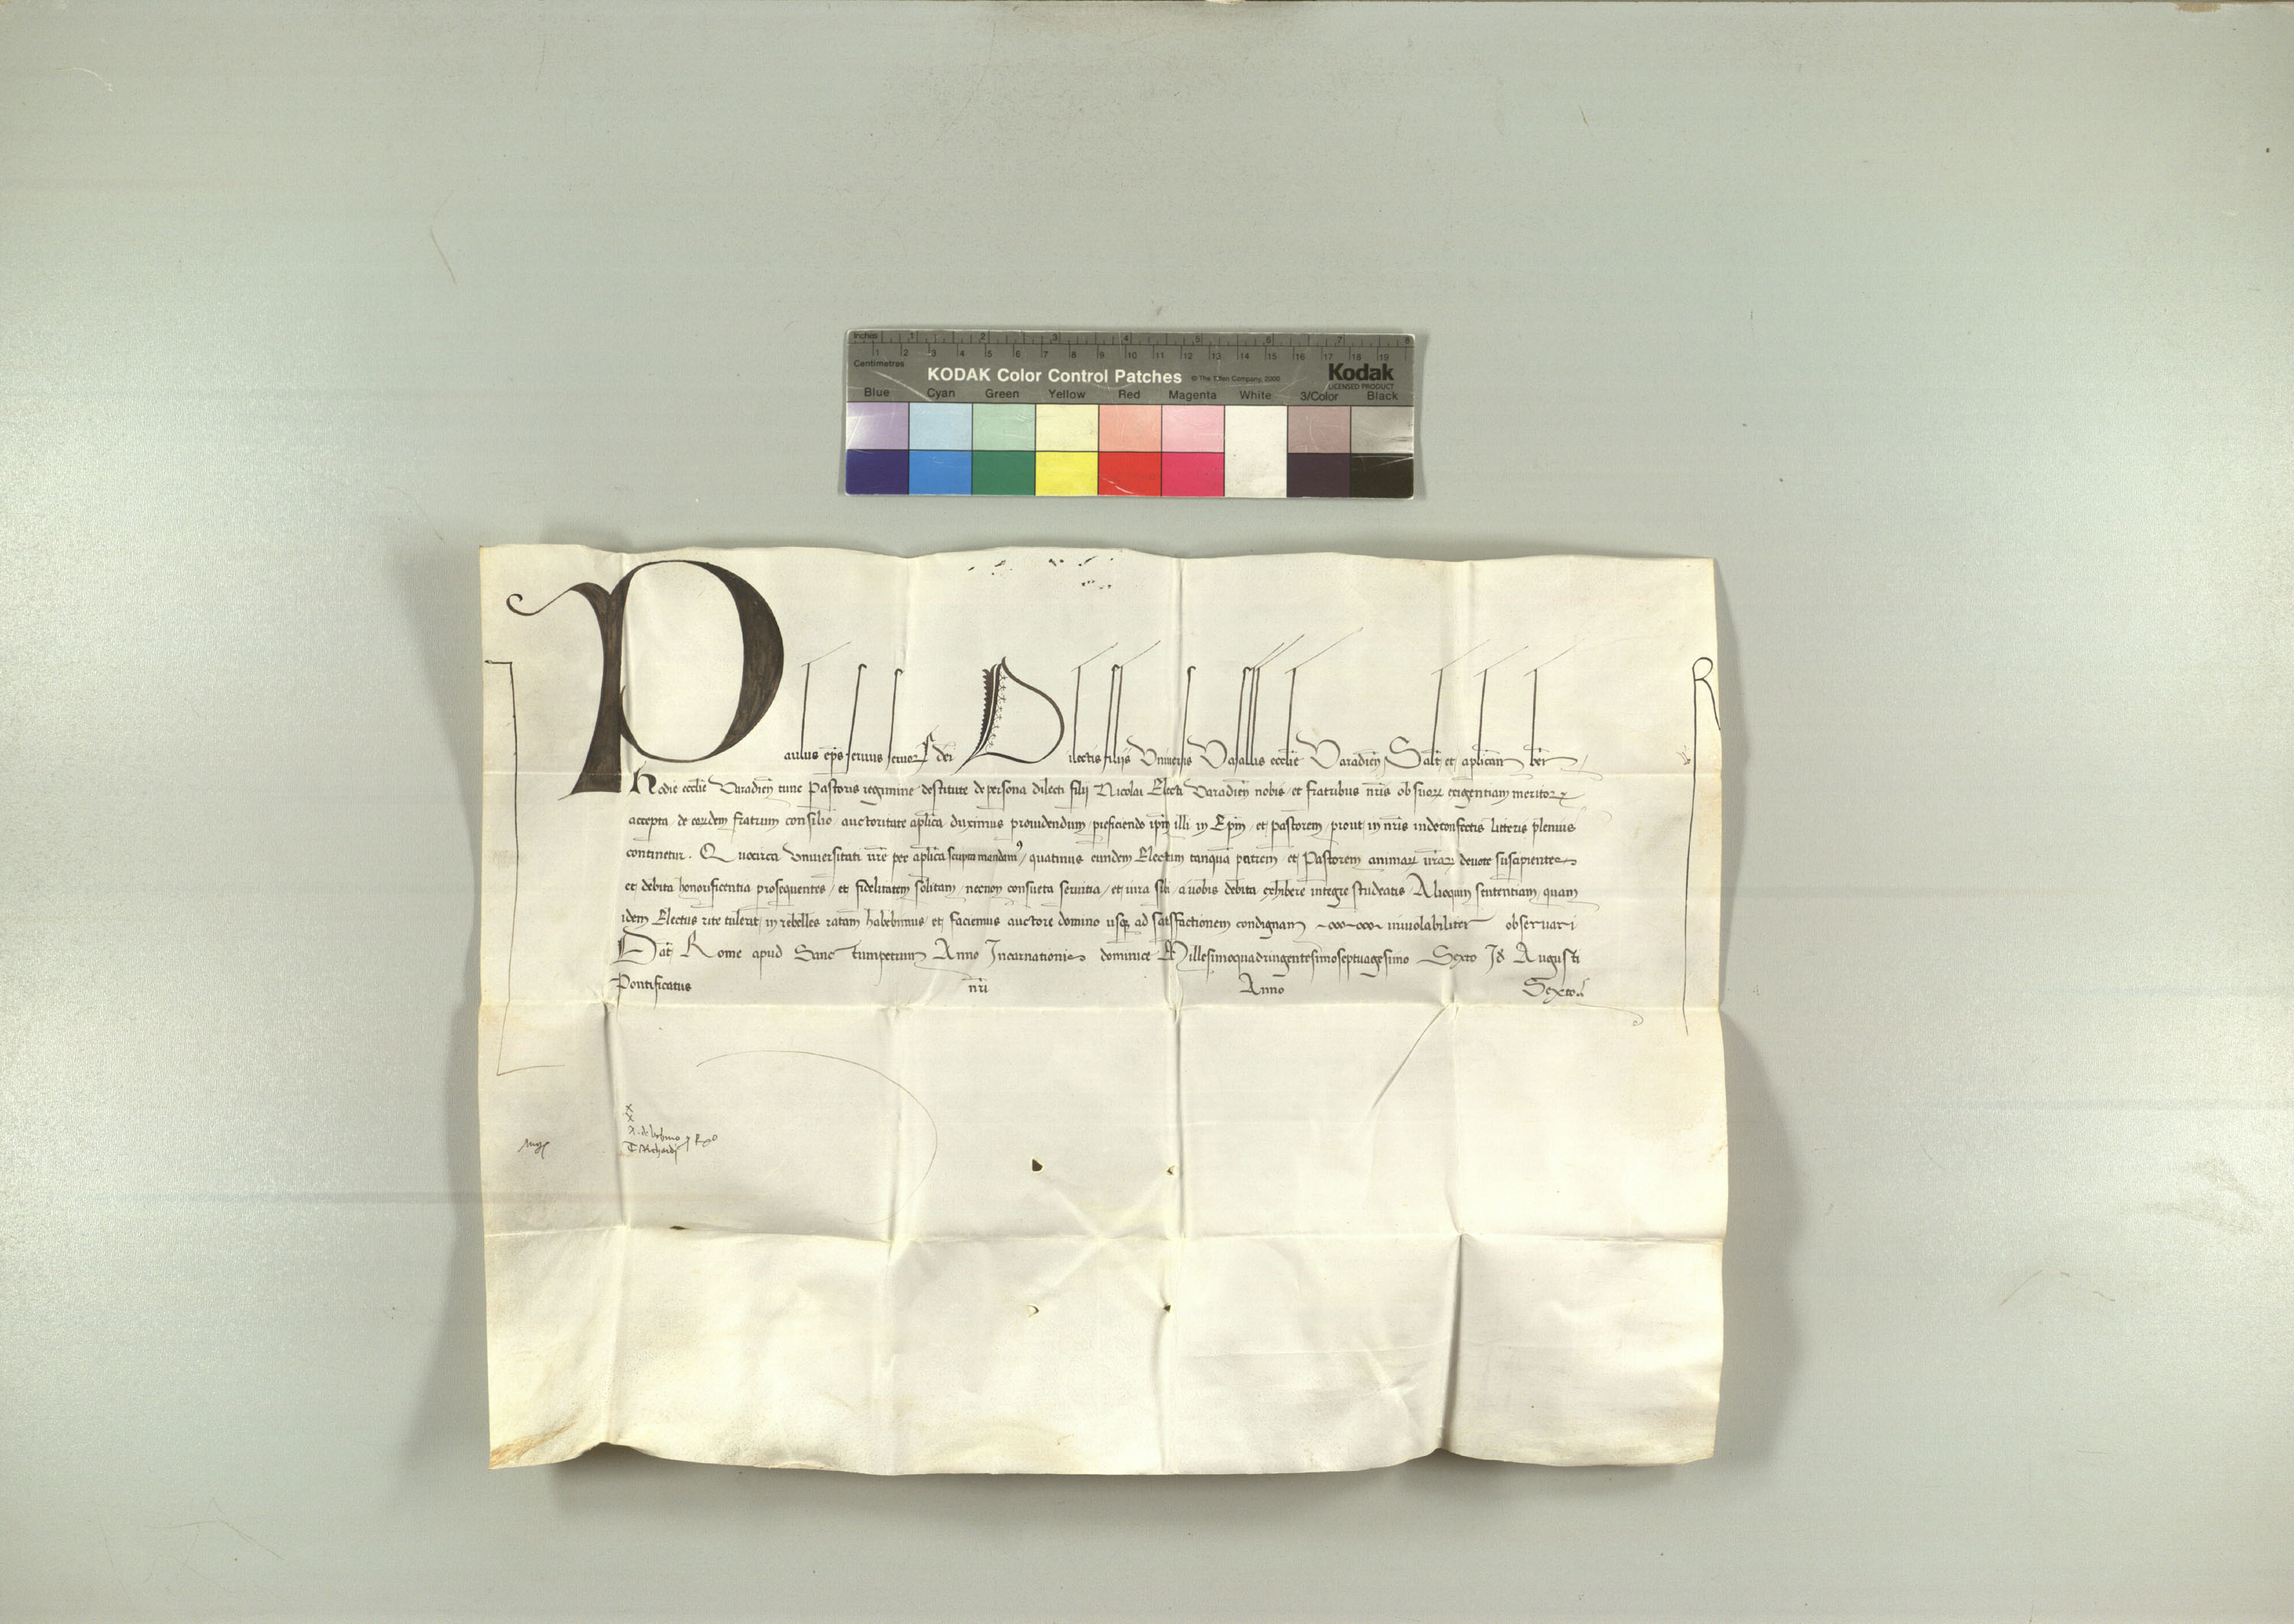 Inches 1 2 3 4 5 6 7 8
1 2 3 4 5 6 7 8 9 10 11 12 13 14 15 16 17 18 19
Centimetres
KODAK Color Control Patches © The Tiffen Company, 2000 Kodak
LICENSED PRODUCT
Blue Cyan Green Yellow Red Magenta White 3/Color Black
R
Paulus ep̄s seruus seruoꝝ dei Dilectis filijs Vniuersis Vasallis ecclīe Varadien̄ Saɫt et aplicam̄ ben̄
Hodie ecclīe Varadien̄ tunc Pastoris regimine destitute de persona dilecti filij Nicolai Electi Varadien̄ nobis et fratribus nr̄is ob suoꝝ exigentiam meritoꝝ
accepta de eoꝝdem fratrum consilio auctoritate aplīca duximus prouidendum preficiendo ip̄m illi in Ep̄m et pastorem prout in nr̄is inde confectis litteris plenius
continetur. Quocirca Vniuersitati vr̄e per aplīca scripta mandamꝰ quatinus eundem Electum tanquā patrem et Pastorem animaꝝ vr̄aꝝ deuote suscipientes
et debita honorificentia prosequentes et fidelitatem solitam necnon consueta seruitia et iura sibi a uobis debita exhibere integre studeatis Alioquin sententiam quam
idem Electus rite tulerit in rebelles ratam habebimus et faciemus auctore domino usqꝫ ad satisfactionem condignam inuiolabiliter obseruari
Dat̄ Rome apud Sanctumpetrum Anno Incarnationis dominice Millesimoquadringentesimoseptuagesimo Sexto Id̄ Augusti
Pontificatus nr̄i Anno Sexto
x
x
A. de Vrbino